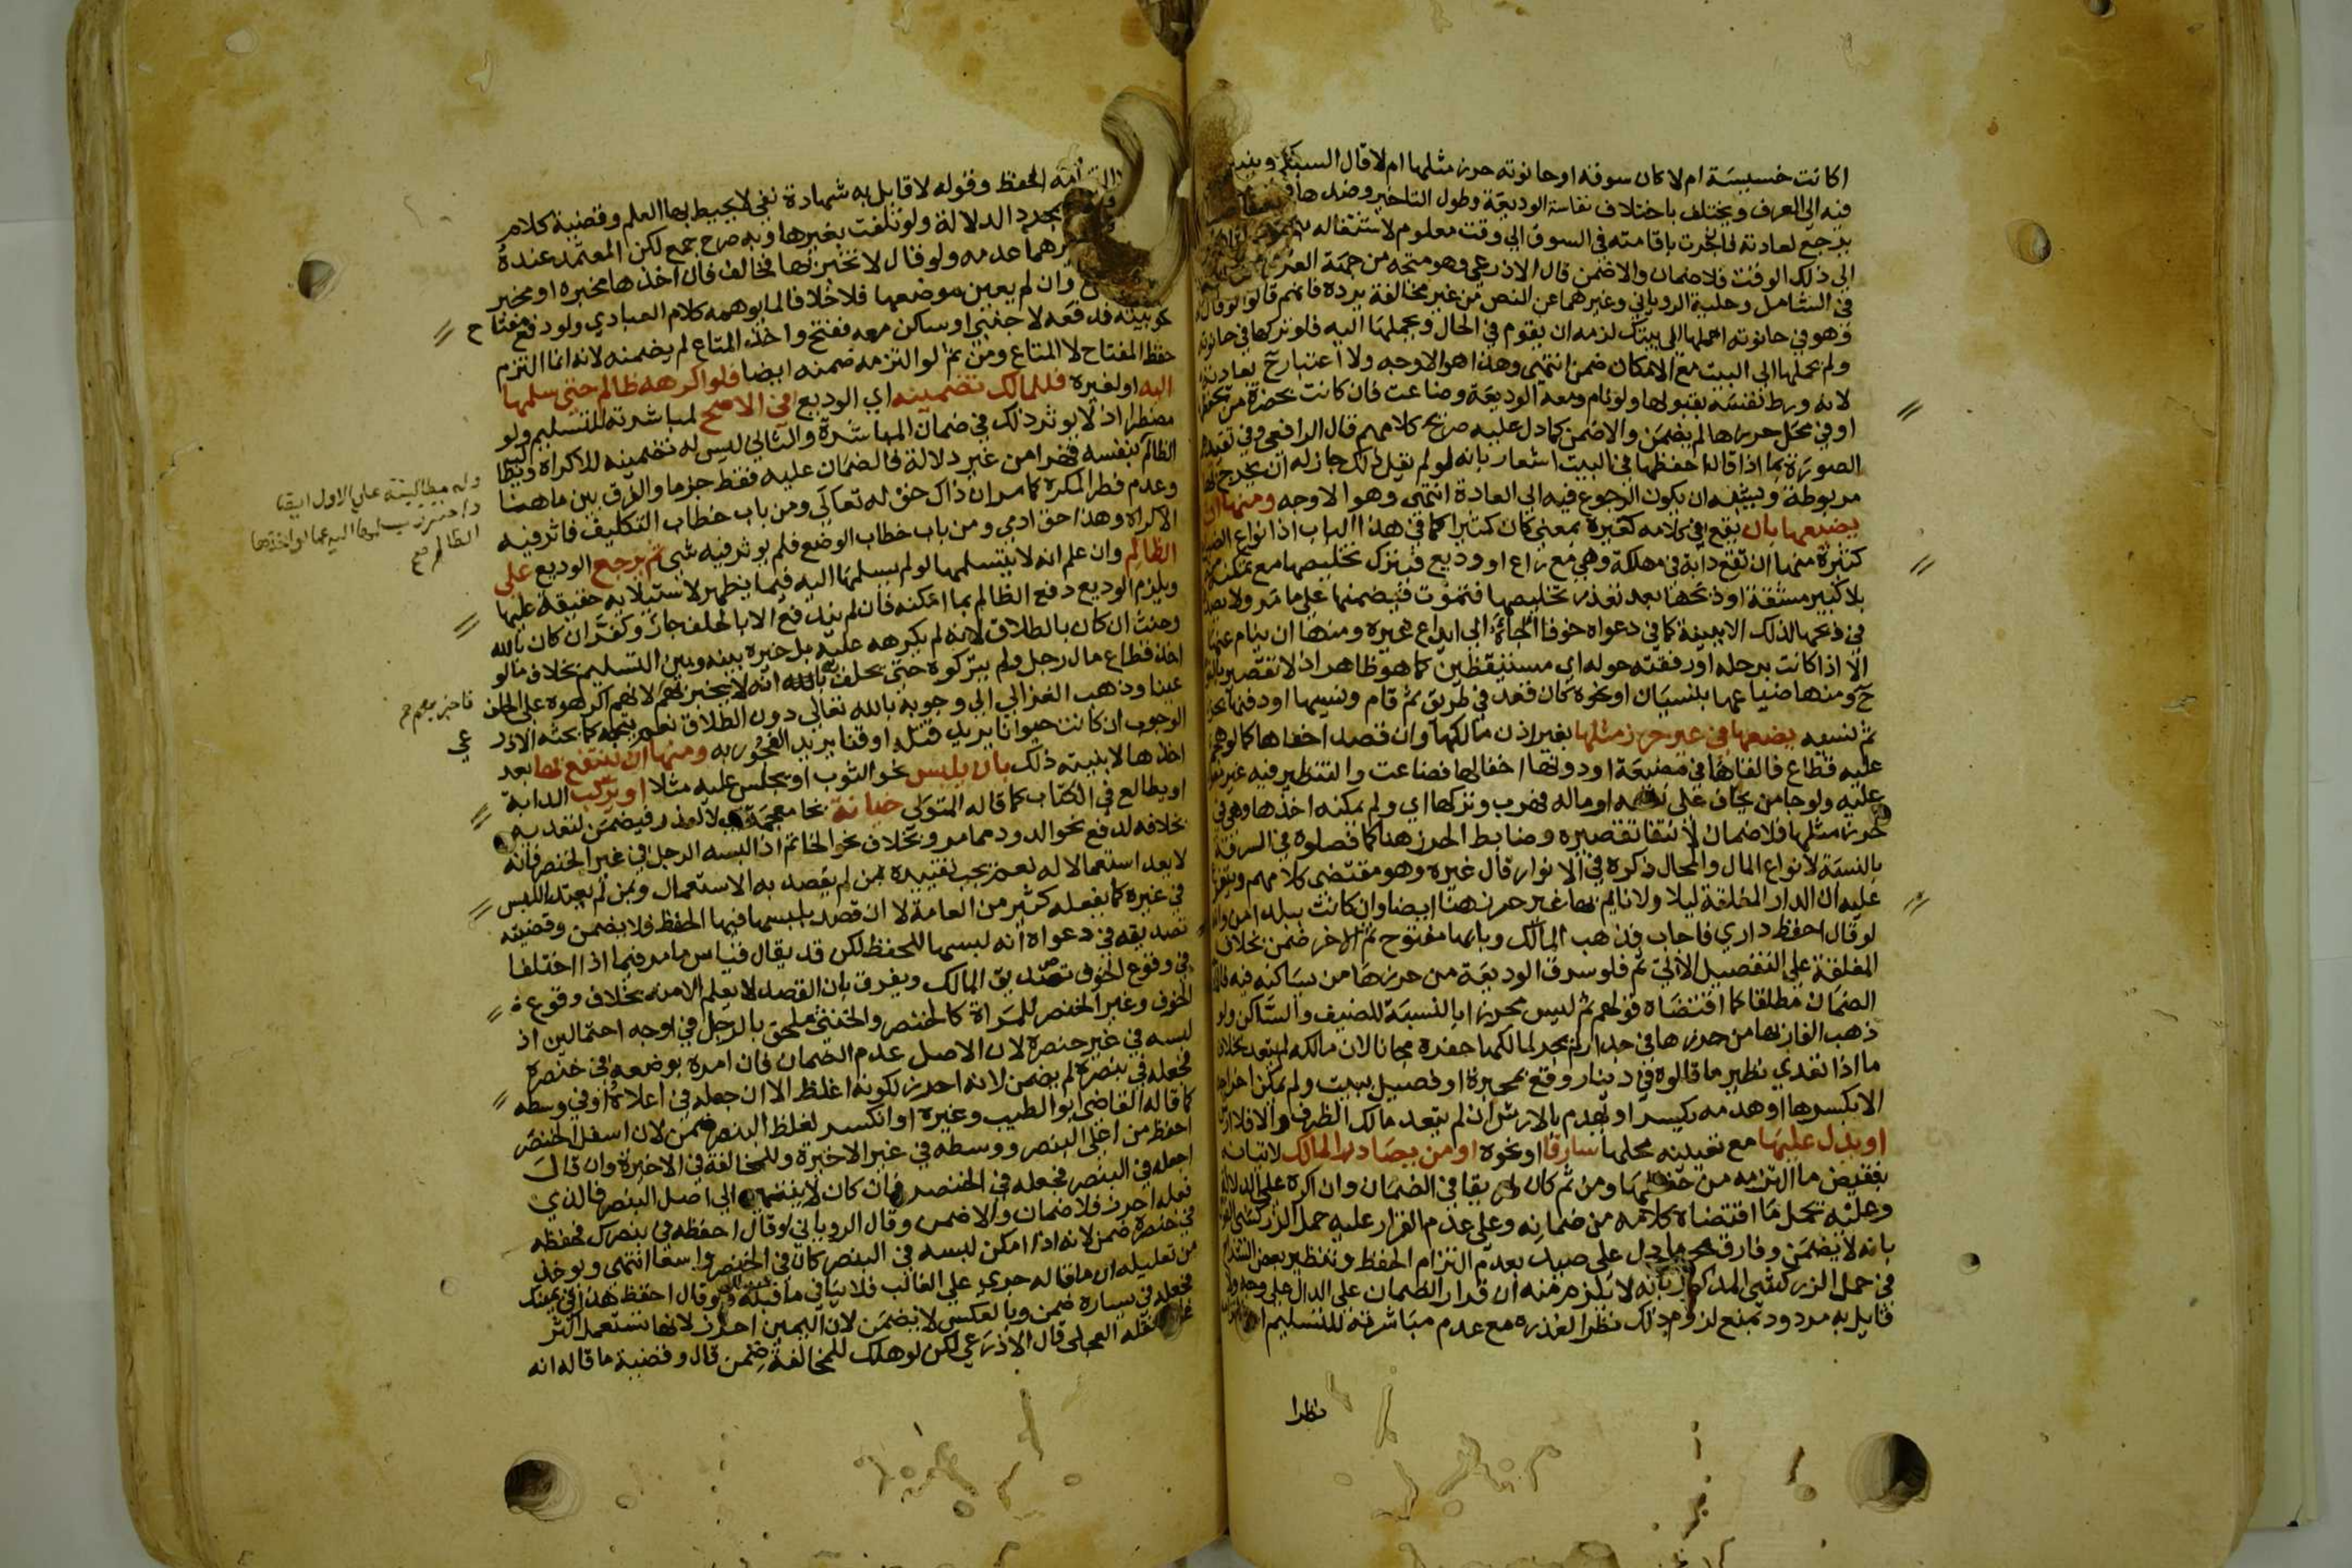 اكانت خسيسة ام لا كان سوقه او حانوته حرز مثلها ام لا قال السبكي
فيه الى العرف ويختلف باختلاف نفاسة الوديعة وطول التاخير وضدها
يرجع لعادته فان جرت باقامته في السوق الى وقت معلوم لاشتغاله
الى ذلك الوقت فلا ضمان والا ضمن قال الاذرعي وهو متجه من جهة العرف
في الشامل وحلية الروياني وغيرهما عن النص من غير مخالفة يرده فانهم قالوا لو قال له
وهو في حانوته احملها الى بيتك لزمه ان يقوم في الحال ويحملها اليه فلو تركها في حانوته
ولم يحملها الى البيت مع الامكان ضمن انتهى وهذا هو الاوجه ولا اعتبار ح بعادته
لانه ورط نفسه بقبولها ولو نام ومعه الوديعة وضاعت فان كانت بحضرة من يحفظها
او في محل حرز لها لم يضمن والا ضمن كما دل عليه صريح كلامهم قال الرافعي وفي تقييد
الصورة بما اذا قال له احفظها في البيت اشعار بانه لو لم يقل ذلك جاز له ان يخرج بها
مربوطة ويشبه ان يكون الرجوع فيه الى العادة انتهى وهو الاوجه ومنها ان
يضيعها بان يقع في كلامه كغيره بمعنى كان كثيرا كما في هذا الباب اذ انواع الضياع
كثيرة منها ان تقع دابة في مهلكة وهي مع راع او وديع فيترك تخليصها مع تمكنه
بلا كبير مشقة او ذبحها بعد تعذر تخليصها فتموت فيضمنها على ما مر ولا يصدق
في ذبحها لذلك الا ببينة كما في دعواه خوفا الجاه الى ايداع غيره ومنها ان ينام عنها
الا اذا كانت برحله او رفقته حوله اي مستيقظين كما هو ظاهر اذ لا تقصير بالنوم
ح ومنها ضياعها بنسيان او نحوه كان قعد في طريق ثم قام ونسيها او دفنها بحرز
ثم نسيه يضعها في غير حرز مثلها بغير اذن مالكها وان قصد اخفاها كما لو هجم
عليه قطاع فالقاها في مضيعة او دونها اخفا لها فضاعت والتنظير فيه غير
عليه ولو جا من يخاف على نفسه او ماله فهرب وتركها اي ولم يمكنه اخذها وهي في
حرز مثلها فلا ضمان لانتفا تقصيره وضابط الحرز هنا كما فصلوه في السرقة
بالنسبة لانواع المال والمحال ذكره في الانوار قال غيره وهو مقتضى كلامهم
عليه ان الدار المغلقة ليلا ولا نايم بها غير حرز هنا ايضا وان كانت ببلد امن
لو قال احفظ داري فاجاب فذهب المالك وبابها مفتوح ثم الاخر ضمن بخلاف
المغلقة على التفصيل الآتي ثم فلو سرق الوديعة من حرزها من يساكنه فيه
الضمان مطلقا كما اقتضاه قولهم ثم ليس محرزا بالنسبة للضيف والساكن ولو
ذهب الفار بها من حرزها في جدار لم يجز لمالكها حفره مجانا لان مالكه لم يتعد بخلاف
ما اذا تعدى نظير ما قالوه في دينار وقع بمحبرة او فصيل ببيت ولم يمكن اخراجه
الا بكسرها او هدمه يكسر او يهدم بالارش ان لم يتعد مالك الظرف والا فلا ارش
او يدل عليها مع تعيينه محلها سارقا او نحوه او من يصادر المالك لاتيانه
بنقيض ما التزمه من حفظها ومن ثم كان طريقا في الضمان وان اكره على الدلالة
وعليه يحمل ما اقتضاه كلامه من ضمانه وعلى عدم القرار عليه حمل الزركشي
بانه لا يضمن وفارق محرما دل على صيد بعدم التزام الحفظ وتنظير بعض
في حمل الزركشي المذكور بانه لا يلزم منه ان قرار الضمان على الدال على وجه
قايل به مردود بمنع لزوم ذلك نظرا لعذره مع عدم مباشرته للتسليم
نظرا
الحفظ وقوله لا قايل به شهادة نفي لا يحيط بها العلم وقضية كلام
بمجرد الدلالة ولو تلفت بغيرها وبه صرح جمع لكن المعتمد عنده
عدمه ولو قال لا تخبر بها فخالف فان اخذها مخبره او مخبر
وان لم يعين موضعها فلا خلافا لما يوهمه كلام العبادي ولو دفع مفتاح
نحو بيته فدفعه لاجنبي او ساكن معه ففتح واخذ المتاع لم يضمنه لانه انما التزم
حفظ المفتاح لا المتاع ومن ثم لو التزمه ضمنه ايضا فلو اكرهه ظالم حتى سلمها
اليه او لغيره فللمالك تضمينه اي الوديع في الاصح لمباشرته للتسليم ولو
مضطرا اذ لا يوثر ذلك في ضمان المباشرة والثاني ليس له تضمينه للاكراه
الظالم بنفسه قهرا من غير دلالة فالضمان عليه فقط جزما والفرق بين ما هنا
وعدم فطر المكره كما مر ان ذاك حق له تعالى ومن باب خطاب التكليف فاثر فيه
الاكراه وهذا حق ادمي ومن باب خطاب الوضع فلم يوثر فيه شي ثم يرجع الوديع على
الظالم وان علم انه لا يتسلمها لو لم يسلمها اليه فيما يظهر لاستيلايه حقيقة عليها
ويلزم الوديع دفع الظالم بما امكنه فان لم يندفع الا بالحلف جاز وكفر ان كان بالله
وحنث ان كان بالطلاق لانه لم يكرهه عليه بل خيره بينه وبين التسليم بخلاف ما لو
اخذ قطاع مال رجل ولم يتركوه حتى يحلف بالله انه لا يخبر بهم لانهم اكرهوه على الحلف
عينا وذهب الغزالي الى وجوبه بالله تعالى دون الطلاق نعم يتجه كما بحثه الاذر
الوجوب ان كانت حيوانا يريد قتله او قنا يريد الفجور به ومنها ان ينتفع بها بعد
اخذها لا بنية ذلك بان يلبس نحو الثوب او يجلس عليه مثلا او يركب الدابة
او يطالع في الكتاب كما قاله المتولى خيانة بخا معجمة اي لا لعذر فيضمن لتعديه
بخلافه لدفع نحو الدود مما مر وبخلاف نحو الخاتم اذا لبسه الرجل في غير الخنصر فانه
لا يعد استعمالا له نعم يجب تقييده بمن لم يقصد به الاستعمال وبمن لم يعتد اللبس
في غيره كما يفعله كثير من العامة لا ان قصد بلبسها فيها الحفظ فلا يضمن وقضيته
تصديقه في دعواه انه لبسها للحفظ لكن قد يقال قياس ما مر فيما اذا اختلفا
في وقوع الخوف تصديق المالك ويفرق بان القصد لا يعلم الا منه بخلاف وقوع
الخوف وغير الخنصر للمراة كالخنصر والخنثى ملحق بالرجل في اوجه احتمالين اذ
لبسه في غير خنصره لان الاصل عدم الضمان فان امره بوضعه في خنصره
فجعله في بنصره لم يضمن لانه احرز لكونه اغلظ الا ان جعله في اعلاه او في وسطه
كما قاله القاضي ابو الطيب وغيره او انكسر لغلظ البنصر فيضمن لان اسفل الخنصر
احفظ من اعلى البنصر ووسطه في غير الاخيرة وللمخالفة في الاخيرة وان قال
اجعله في البنصر فجعله في الخنصر فان كان لا ينتهي الى اصل البنصر فالذي
فعله احرز فلا ضمان والا ضمن وقال الروياني لو قال احفظه في بنصرك فحفظه
في خنصره ضمن لانه اذا امكن لبسه في البنصر كان في الخنصر واسعا انتهى ويوخذ
من تعليله ان ما قاله جرى على الغالب فلا ينافي ما قبله ولو قال احفظ هذا في يمينك
فجعله في يساره ضمن وبالعكس لا يضمن لان اليمين احرز لانها تستعمل اكثر
نقله العجلي قال الاذرعي لكن لو هلك للمخالفة ضمن قال وقضية ما قاله انه
وله مطالبته على الاول ايضا
الظالم